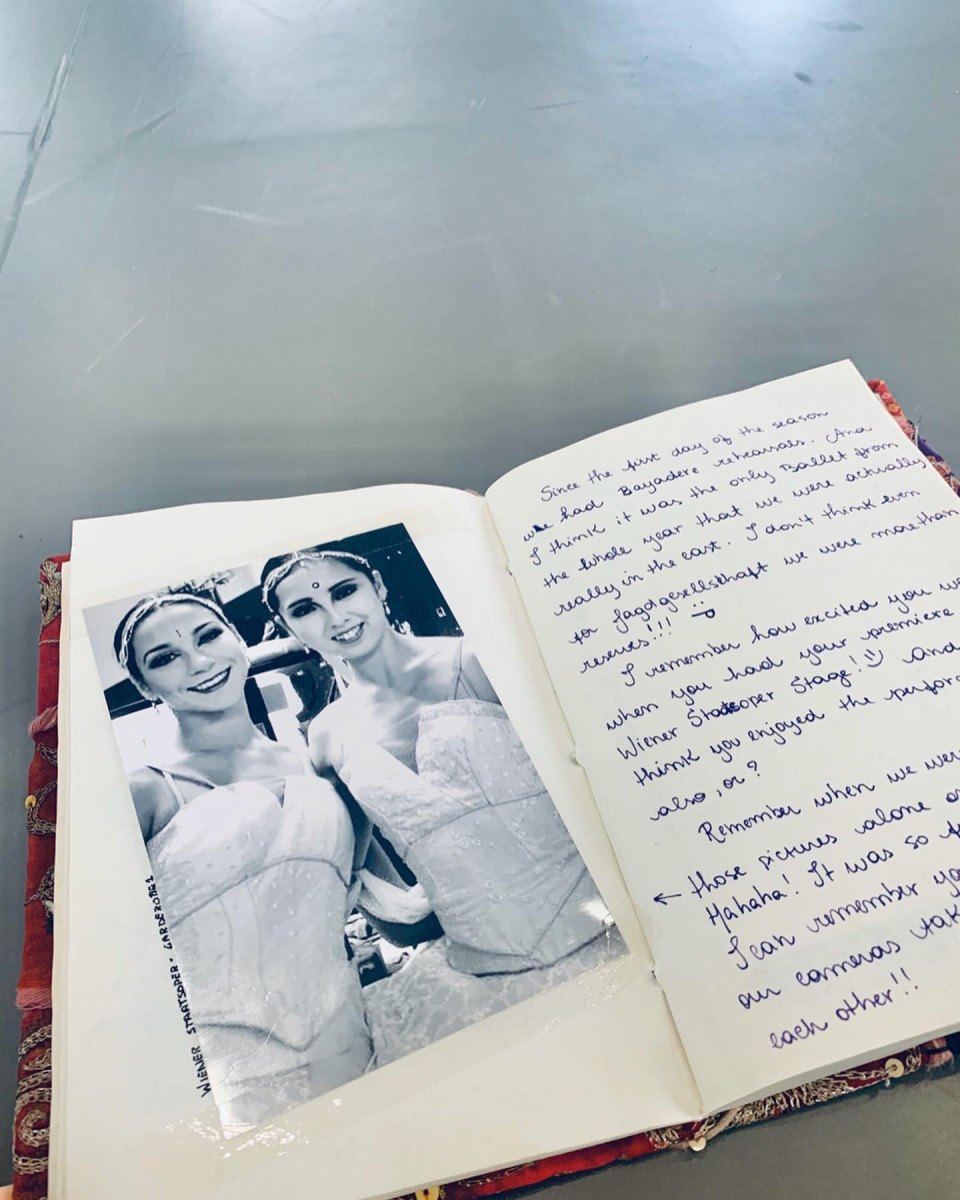 WIENER STAATSOPER - GARDEROBE 1
Since the first day of the season
we had Bayadere rehearsals. And
I think it was the only Ballet from
the whole year that we were actually
really in the cast. I don't think even
for Jagdgesellschaft we were more than
reserves!!! :P
I remember how excited you we
when you had your premiere
Wiener Staatsoper Stage! :) And
think you enjoyed the perfor
also, or?
Remember when we wer
← those pictures alone
Hahaha! It was so f
I can remember yo
our cameras tak
each other!!